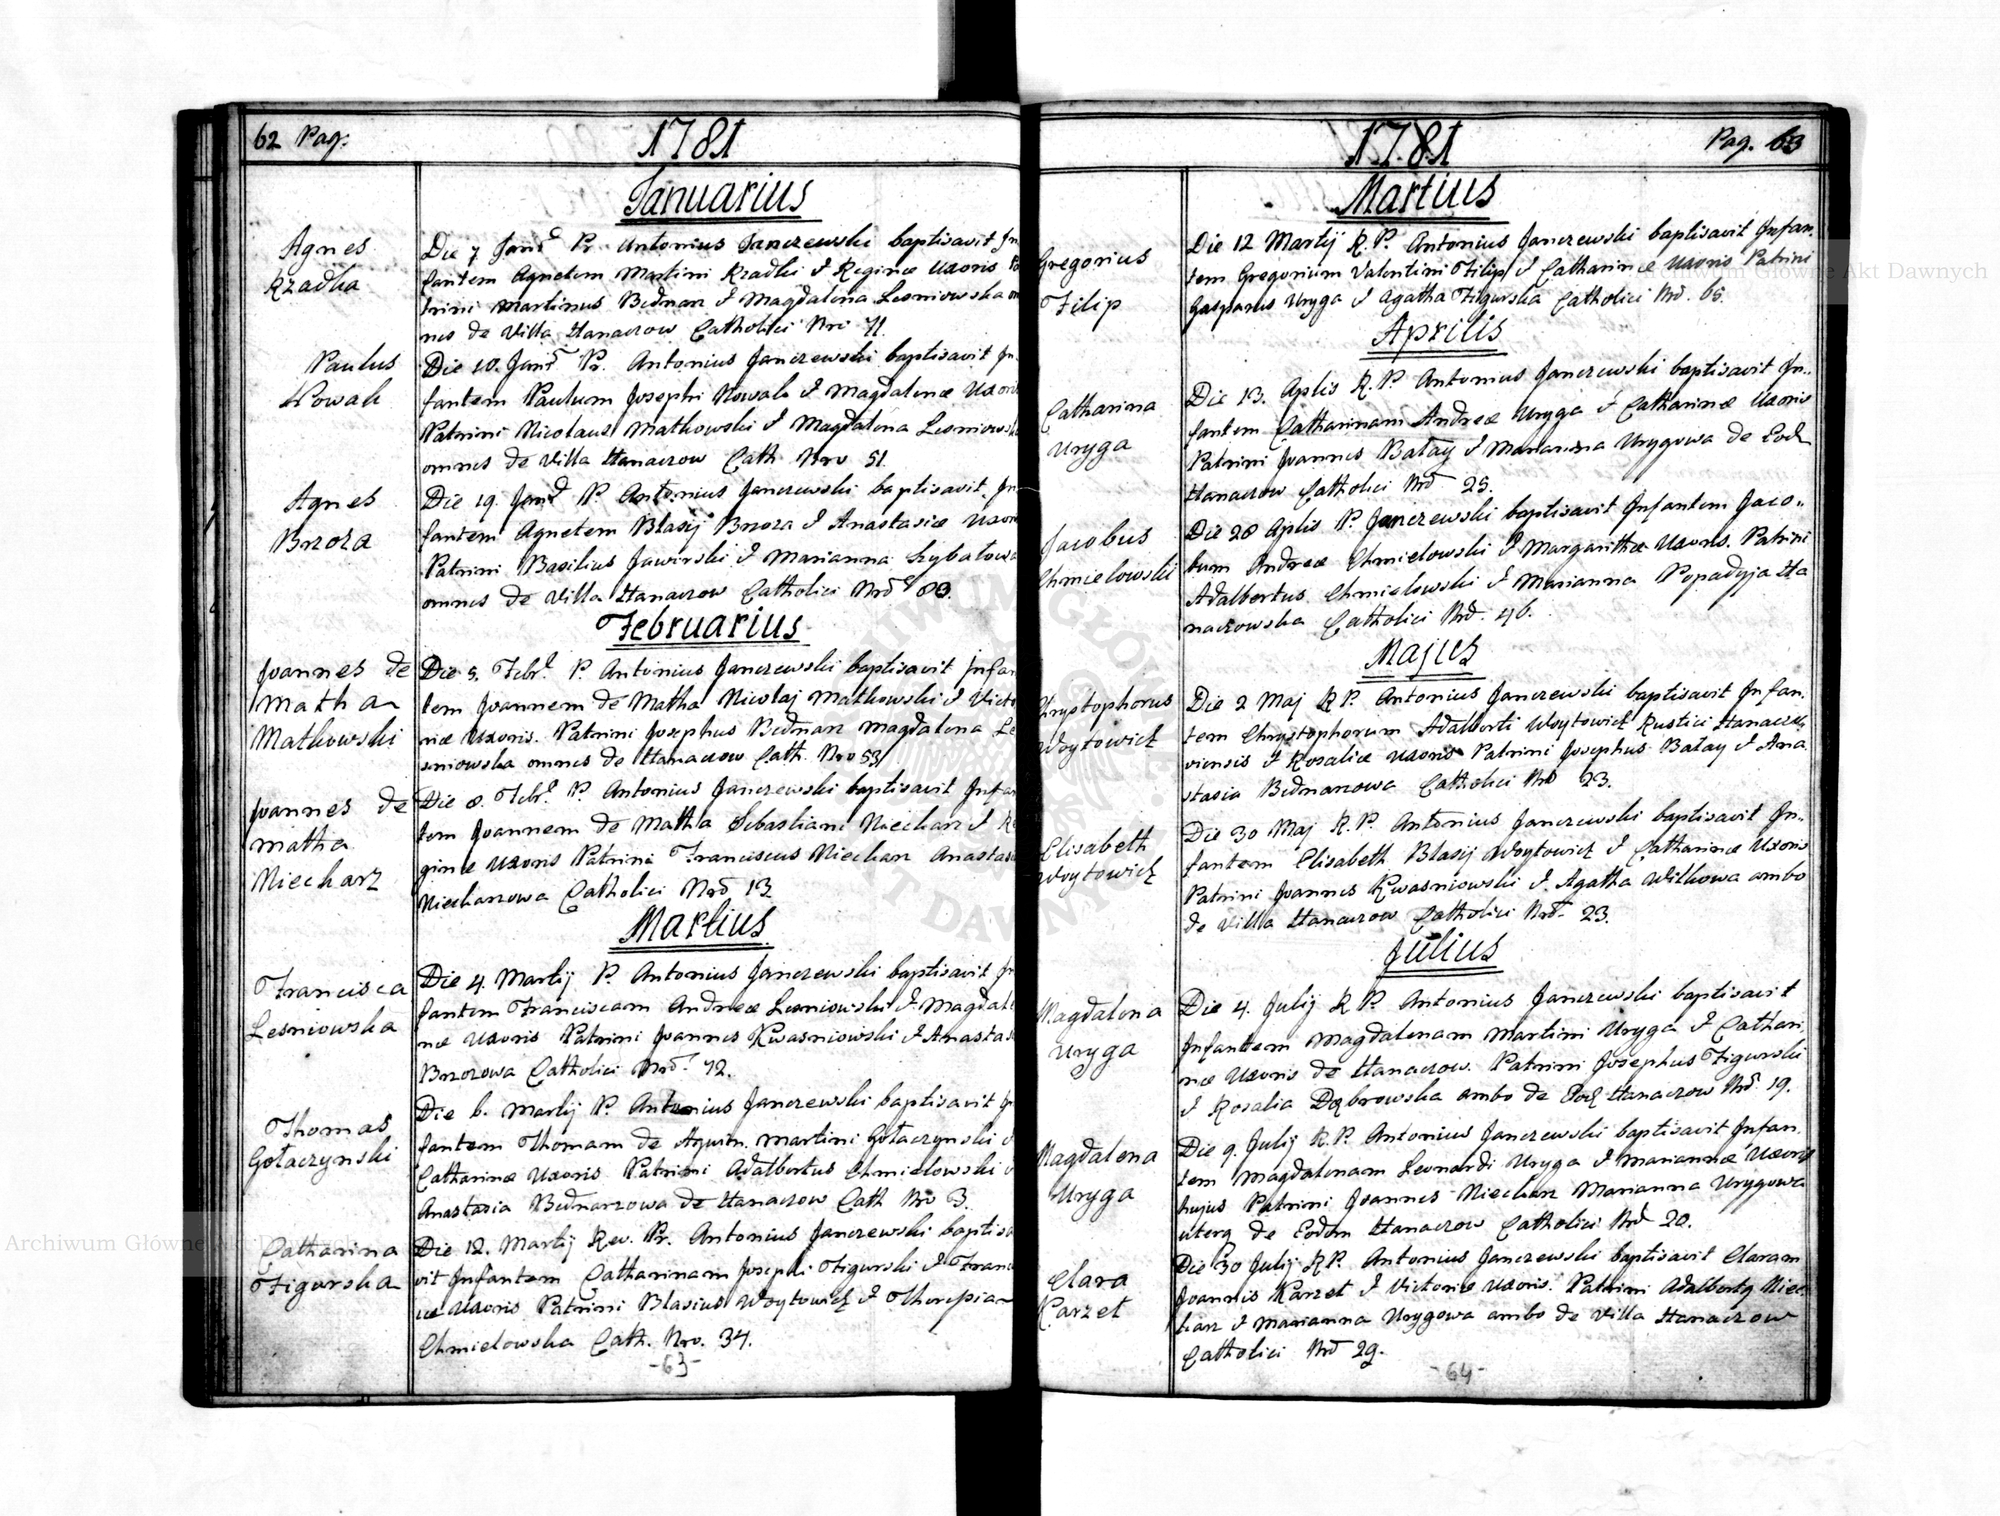 62 Pag.
1781
Januarius
Agnes
Kzadka
Die 7 Janr Pr. Antonius Janczewski baptisavit In
fantem Agnetem Martini Kzadki & Reginæ Uxoris Pa
trini Martinus Bednarz & Magdalena Lesniowska om
nes de Villa Hanaczow Catholici Nro 71.
Paulus
Nowak
Die 10. Janr Pr. Antonius Janczewski baptisavit In
fantem Paulum Josephi Nowak & Magdalenæ Uxoris
Patrini Nicolaus Matkowski & Magdalena Lesniowska
omnes de Villa Hanaczow Cath. Nro 51.
Agnes
Brzoza
Die 19. Janr P. Antonius Janczewski baptisavit In
fantem Agnetem Blasij Brzoza & Anastasiæ Uxoris
Patrini Basilius Jawirski & Marianna Szybatowa
omnes de Villa Hanaczow Catholici Nro 80.
Februarius
Joannes de
Matha
Matkowski
Die 5. Febr. P. Antonius Janczewski baptisavit Infan
tem Joannem de Matha Nicolaj Matkowski & Victo
riæ Uxoris. Patrini Josephus Bednarz Magdalena Le
sniowska omnes de Hanaczow Cath. Nro 53
Joannes de
matha
Niecharz
Die 8. Febr. P. Antonius Janczewski baptisavit Infan
tem Joannem de Matha Sebastiani Niecharz & Re
ginæ Uxoris Patrini Franciscus Niecharz Anastasia
Niecharzowa Catholici Nro 13.
Martius
Francisca
Lesniowska
Die 4. Martij P. Antonius Janczewski baptisavit In
fantem Franciscam Andreæ Lesniowski & Magdale
næ Uxoris Patrini Joannes Kwasniowski & Anastasia
Brzozowa Catholici Nro 72.
Thomas
Gołaczynski
Die 6. Martij P. Antonius Janczewski baptisavit In
fantem Thomam de Aquin. Martini Gołaczynski &
Catharinæ Uxoris Patrini Adalbertus Chmielowski &
Anastasia Bednarzowa de Hanaczow Cath Nro 3.
Catharina
Figurska
Die 12. Martij Rev. Pr. Antonius Janczewski baptisa
vit Infantem Catharinam Josephi Figurski & Franc
cæ Uxoris Patrini Blasius Woytowicz & Therepia
Chmielowska Cath. Nro. 34.
-63-
1781
Pag. 63
Martius
Gregorius
Filip
Die 12 Martij R. P. Antonius Janczewski baptisavit Infan.
tem Gregorium Valentini Filip & Catharinæ Uxoris Patrini
Gasparus Uryga & Agatha Figurska Catholici Nro. 65.
Aprilis
Catharina
Uryga
Die 13. Aplis R. P. Antonius Janczewski baptisavit In..
fantem Catharinam Andreæ Uryga & Catharinæ Uxoris
Patrini Joannes Batay & Marianna Urygowa de Eod
Hanaczow Catholici Nro 25.
Jacobus
Chmielowski
Die 28 Aplis P. Janczewski baptisavit Infantem Jaco..
bum Andreæ Chmielowski & Margarithæ Uxoris. Patrini
Adalbertus Chmielowski & Marianna Popadyja Ha
naczowska Catholici Nro. 46.
Majus
Krystophorus
Woytowicz
Die 2 Maj R P. Antonius Janczewski baptisavit Infan.
tem Chrystophorum Adalberti Woytowicz Rustici Hanaczo
viensis & Rosaliæ Uxoris Patrini Josephus Batay & Ana
stasia Bednarzowa Catholici Nro 23.
Elisabeth
Woytowicz
Die 30 Maj R. P. Antonius Janczewski baptisavit In..
fantem Elisabeth Blasij Woytowicz & Catharinæ Uxoris
Patrini Joannes Kwasniowski & Agatha Witkowa ambo
de Villa Hanaczow Catholici Nro. 23.
Julius
Magdalena
Uryga
Die 4. Julij R P. Antonius Janczewski baptisavit
Infantem Magdalenam Martini Uryga & Cathari
næ Uxoris de Hanaczow. Patrini Josephus Figurski
& Rosalia Dąbrowska ambo de Pod Hanaczow Nro. 19.
Magdalena
Uryga
Die 9. Julij R. P. Antonius Janczewski baptisavit Infan.
tem Magdalenam Leonardi Uryga & Mariannæ Uxoris
hujus Patrini Joannes Niecharz Marianna Urygowa
uterq de Eodem Hanaczow Catholici Nro 20.
Clara
Karzet
Die 30 Julij R P. Antonius Janczewski baptisavit Claram
Joannis Karzet & Victoriæ Uxoris. Patrini Adalbertq Niec
harz & Marianna Urygowa ambo de Villa Hanaczow
Catholici Nro 29.
-64-
Archiwum Główne Akt Dawnych
Archiwum Główne Akt Dawnych
ARCHIWUM GŁÓWNE AKT DAWNYCH